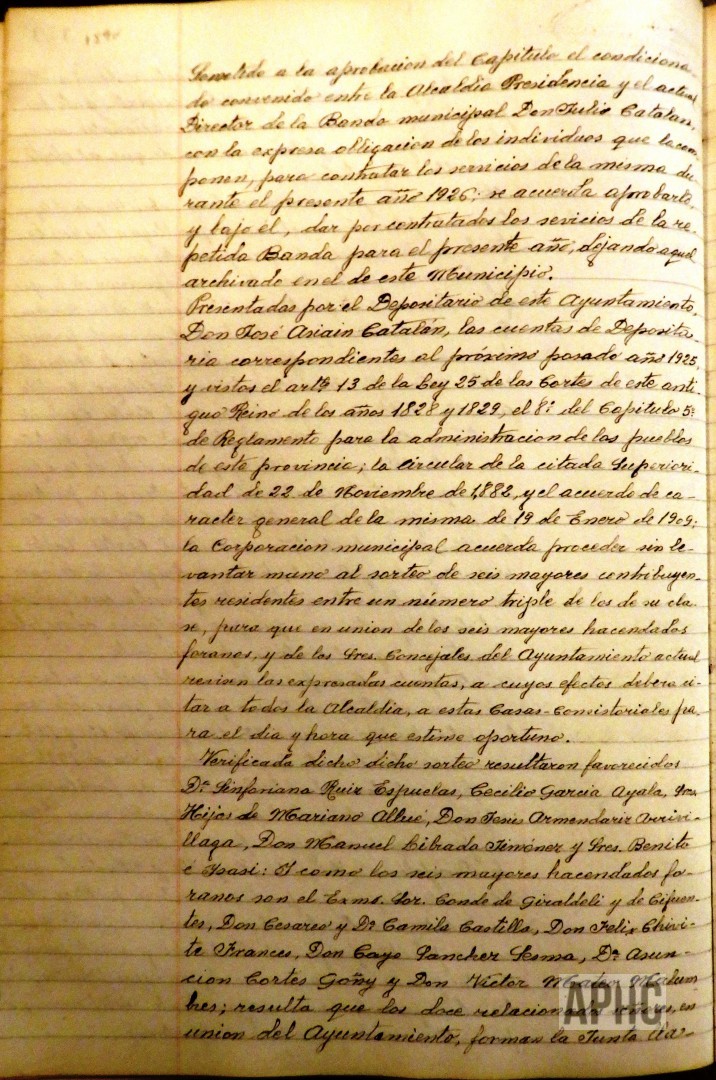 Sometido a la aprobacion del Capitulo el condiciona-
do convenido entre la Alcaldia Presidencia y el actual
Director de la Banda municipal Don Julio Catalan,
con la expresa obligacion de los individuos que la com
ponen, para contratar los servicios de la misma du
rante el presente año 1926; se acuerda aprobarlo
y bajo el, dar por contratados los servicios de la re
petida Banda para el presente año, dejando aquel
archivado en el de este Municipio.
Presentadas por el Depositario de este Ayuntamiento,
Don José Asiain Catalán, las cuentas de Deposita
ria correspondientes al próximo pasado año 1925,
y vistos el artº 13 de la Ley 25 de las Cortes de este anti-
guo Reino de los años 1828 y 1829, el 8º del Capitulo 5º
de Reglamento para la administracion de los pueblos
de esta provincia; la circular de la citada Superiori-
dad de 22 de Noviembre de 1,882, y el acuerdo de ca-
racter general de la misma de 19 de Enero de 1909;
la Corporacion municipal acuerda proceder sin le-
vantar mano al sorteo de seis mayores contribuyen-
tes residentes entre un número triple de los de su cla-
se, para que en union de los seis mayores hacendados
foranos, y de los Sres. Concejales del Ayuntamiento actual
revisen las expresadas cuentas, a cuyos efectos debera ci-
tar a todos la Alcaldia, a estas Casas-Consistoriales pa-
ra el dia y hora que estime oportuno.
Verificada dicho dicho sorteo resultaron favorecidos
Dª Sinforiana Ruiz Espuelas, Cecilio Garcia Ayala, Sres.
Hijos de Mariano Allué, Don Jesus Armendariz Arrivi-
llaga, Don Manuel Librada Jiménez y Sres. Benito
e Isasi: Y como los seis mayores hacendados fo-
ranos son el Exmo. Sor. Conde de Giraldeli y de Cifuen-
tes, Don Cesareo y Dª Camila Castilla, Don Felix Chivi-
te Frances, Don Cayo Sanchez Lesma, Dª Asun-
cion Cortes Goñy y Don Victor Mateo Malum
bres; resulta que los doce relacionados en
union del Ayuntamiento, forman la Junta da-
APHC